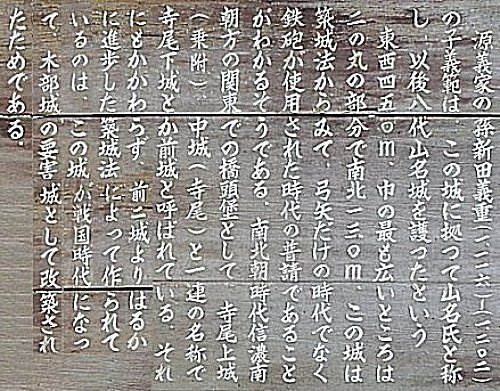 源義家の孫新田義重(一一二六)ー(一二〇二)
の子義範は、この城に拠って山名氏と称
し、以後八代山名城を護ったという
東西四五〇m、巾の最も広いところは
二の丸の部分で南北一三〇m、この城は
築城法からみて、弓矢だけの時代でなく
鉄砲が使用された時代の普請であること
がわかるそうである。南北朝時代信濃南
朝方の関東での橋頭堡として、寺尾上城
(乗附)、中城(寺尾)と一連の名称で
寺尾下城とか前城と呼ばれている。それ
にもかかわらず、前二城よりはるか
に進歩した築城法によって作られて
いるのは、この城が戦国時代になっ
て、木部城の要害城として改築され
たためである。